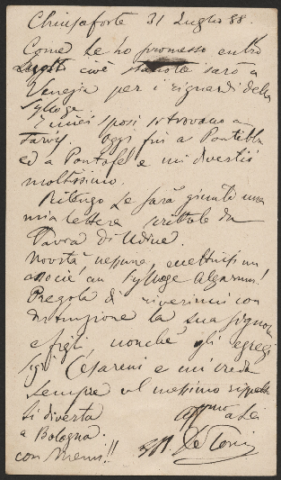 Chiusaforte 31 Luglio 88.
Come Le ho promesso entro
Luglio cioè stanotte sarò a
Venezia per i riguardi della
Sylloge.
I miei sposi si trovano a
Tarvis. Oggi fui a Pontebba
ed a Pontafel e mi divertii
moltissimo.
Ritengo Le sarà giunta una
mia lettera scrittale da
Udine.
Novità nessuna,
Sylloge Algarum!
Pregola di riverirmi con
distinzione la sua Signora
e figli nonchè gli egregi
Sigri Cesareni e mi creda
sempre col massimo rispetto
Si diverta
a Bologna.
con
affmo a Lei
De Toni